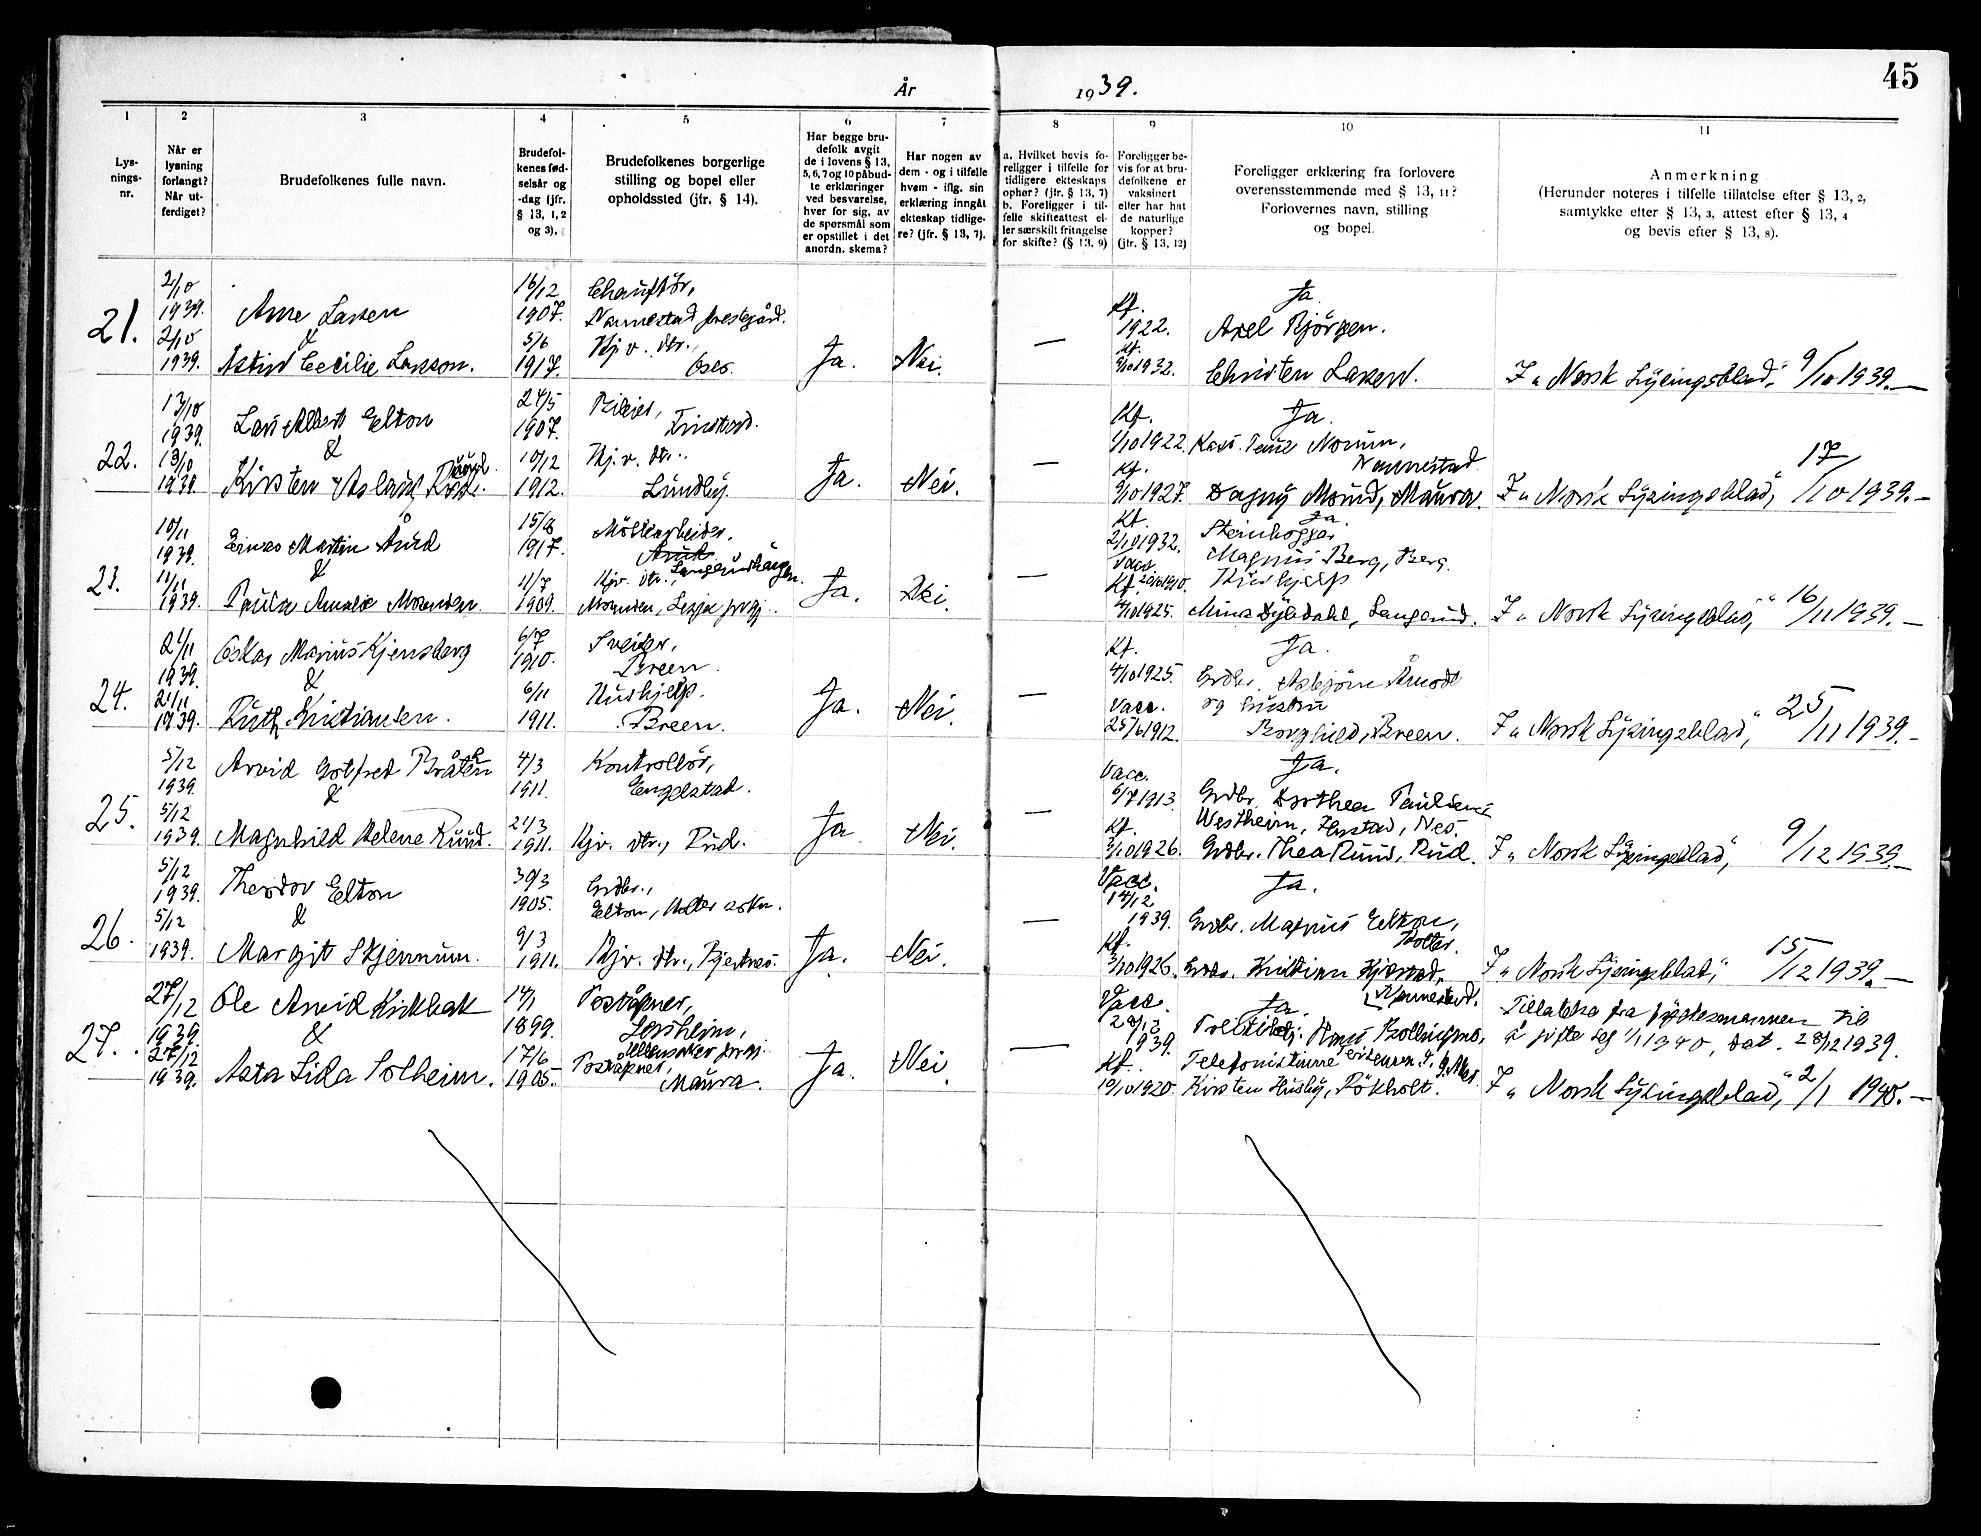 45
År 1939.
1
2
3
4
5
6
7
8
9
10
11
Lys-
nings-
nr.
Når er
lysning
forlangt?
Når ut-
ferdiget?
Brudefolkenes fulle navn.
Brudefol-
kenes fød-
selsår og
-dag (jfr.
§ 13, 1, 2
og 3).
Brudefolkenes borgerlige
stilling og bopel eller
opholdssted (jfr. § 14).
Har begge bru-
defolk avgit
de i lovens § 13,
5, 6, 7 og 10 påbud-
te erklæringer
ved besvarelse,
hver for sig, av
de spørsmål som
er opstillet i det
anordn. skema?
Har nogen av
dem - og i tilfelle
hvem - iflg. sin
erklæring inngåt
ekteskap tidlige-
re? (jfr. § 13, 7).
a. Hvilket bevis fo-
religger i tilfelle for
tidligere ekteskaps
ophør? (jfr. § 13, 7)
b. Foreligger i til-
felle skifteattest el-
ler særskilt fritagelse
for skifte? (§ 13, 9)
Foreligger be-
vis for at bru-
defolkene er
vaksinert
eller har hat
de naturlige
kopper?
(jfr. § 13, 12)
Foreligger erklæring fra forlovere
overensstemmende med § 13, 11?
Forlovernes navn, stilling
og bopel.
Anmerkning
(Herunder noteres i tilfelle tillatelse efter § 13, 2,
samtykke efter § 13, 3, attest efter § 13, 4
og bevis efter § 13, 8).
21.
2/10
1939.
2/10
1939.
Arne Larsen
&
Astrid Cecilie Larsson.
16/12
1907.
5/6
1917.
Chaufför,
Nannestad prestegård.
Hjv. dtr.,
Ja.
Nei.
—
Kf.
1922.
Kf.
2/10 1932.
Ja.
Axel Björgen.
Christen Larsen.
I „Norsk Lysingsblad," 9/10 1939.—
22.
13/10
1939.
13/10
1939.
Lars Albert Elton
&
Kirsten Aslaug
24/5
1907.
10/12
1912.
Tinstad.
Hj. v. dtr.
Lundby.
Ja.
Nei.
—
Kf.
1/10 1922.
Kf.
2/10 1927.
Ja.
Norum,
Nannestad
Dagny Mound, Maura.
I „Norsk Lysingsblad," 17/10 1939.—
23.
10/11
1939.
11/11
1939.
Einar Martin Ruud
&
Paula Amalie Morenden.
15/8
1917.
4/7
1909.
Möllearbeider,
Hjv. dtr.,
Morenden, Lesja prgj.
Ja.
Nei.
—
Kf.
2/10 1932.
Vacc.
Kf.
2/10 1925.
Ja.
Steinhogger
Magnus Berg, Berg.
Hushjelp
Mina Dybdahl, Langerud.
I „Norsk Lysingsblad," 16/11 1939.—
24.
21/11
1939.
21/11
1939.
Oskar Marius Kjensberg
&
Ruth Kristiansen.
6/7
1910.
6/11
1911.
Sveiser,
Breen.
Hushjelp.
Breen.
Ja.
Nei.
—
Kf.
4/10 1925.
Vacc.
25/6 1912.
Ja.
Grdbr. Asbjörn Åmodt
og hustru
Borghild, Breen.
I „Norsk Lysingsblad," 25/11 1939.—
25.
5/12
1939.
5/12
1939.
Arvid Gotfred Bråten
&
Magnhild Helene Ruud.
4/3
1911.
21/3
1911.
Kontrollör,
Engelstad.
Hjv. dtr., Rud.
Ja
Nei.
—
Vacc.
6/7 1913.
Kf.
3/10 1926.
Ja.
Grdbr. Dorthea Pauline
Westheim, Herstad, Nes.
Grdbr. Thea Ruud, Rud.
I „Norsk Lysingsblad," 9/12 1939.—
26.
5/12
1939.
5/12
1939.
Theodor Elton
&
Margit Skjennum.
30/3
1905.
9/3
1911.
Grdbr.,
Elton, Holter sokn.
Hjv. dtr., Bjerknes.
Ja.
Nei.
—
Vacc.
14/12
1939.
Kf.
3/10 1926.
Ja.
Grdbr. Magnus Elton,
Holter.
Kristian
Nannestad.
I „Norsk Lysingsblad," 15/12 1939.—
27.
27/12
1939.
27/12
1939.
Ole Arvid Kirkbak
&
Asta Lida Solheim.
14/1
1899.
17/6
1905.
Poståpner,
Jessheim,
Ullensaker prgj.
Poståpner,
Maura.
Ja.
Nei.
—
Vacc.
28/12
1939.
Kf.
10/10 1920.
Ja.
Telefonistinne
Kirsten Husby, Rökholt.
Tillatelse fra fylkesmannen til
å gifte seg 1/1 1940, dat. 28/12 1939.
I „Norsk Lysingsblad," 2/1 1940.—